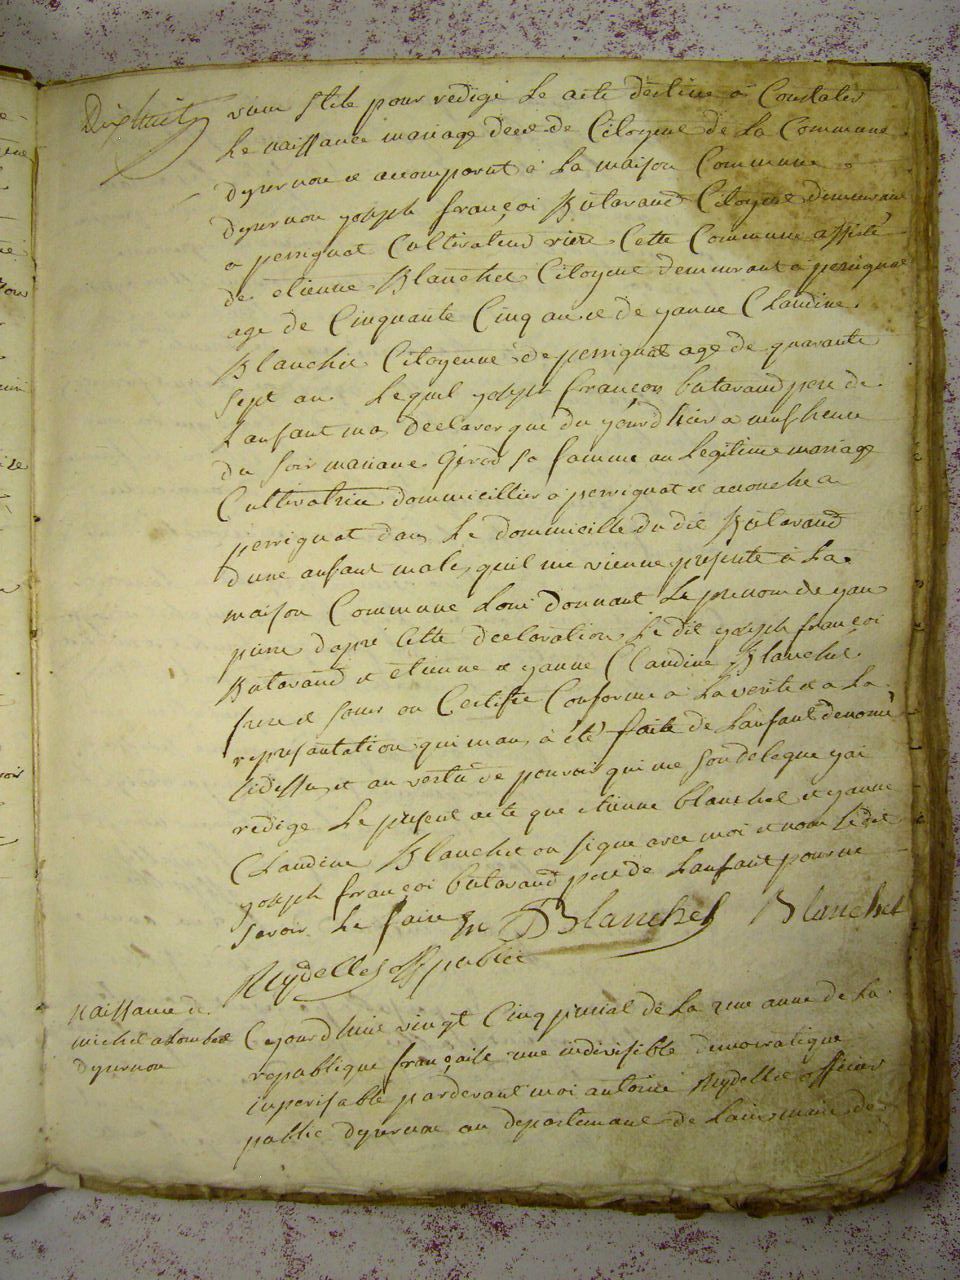 Dixhuit
vien stile pour redigé le acte destine a Constater
le naissance mariage dece de Citoyene de la Commune
dyzernou e accomparut a la maison Commune
dyzernou yoseph françoi Butavand Citoyene demeurant
a perrignat Cultivateur riere Cette Commune assisté
de etienne Blanchet Citoyene demeurant a perrignat
age de Cinquante Cinq an e de yanne Claudine
Blanchet Citoyenne de perrignat age de quarante
Sept an lequel yoseph françois butavand pere de
Lanfant ma declarer que du yourdhier a neuf heure
du soir mariane Girod sa famme an legitime mariage
Cultivatrice dommicillier a perrignat e acouche a
perrignat dan le dommicille du dit Butavand
dune anfant male quil me vienne presente a la
maison Commune loui donnant le prenom de yan
pierre dapré Cette declaration le dit yoseph françoi
Butavand et etienne e yanne Claudine Blanchet
frere e soeur on Certifie Conforme a la verité e a la
representation qui man a été faite de lanfant denomé
Cidessu et an vertu de pouvoir qui me son delegue yai
redige le present acte que etienne blanchet et yanne
Claudine Blanchet on signe avec moi et nom le dit
yoseph françoi butavand pere de lanfant pour ne
savoir le faire E Blanchet Blanchet
Reydellet off public
naissance de
michel
dyzernou
Ceyourdhuie vingt Cinq prerial de la 2me anne de la
republique française une indivisible democratique
inperisable pardevant moi antoine Reydellet officier
public dyzernou au departemant de lain maire de